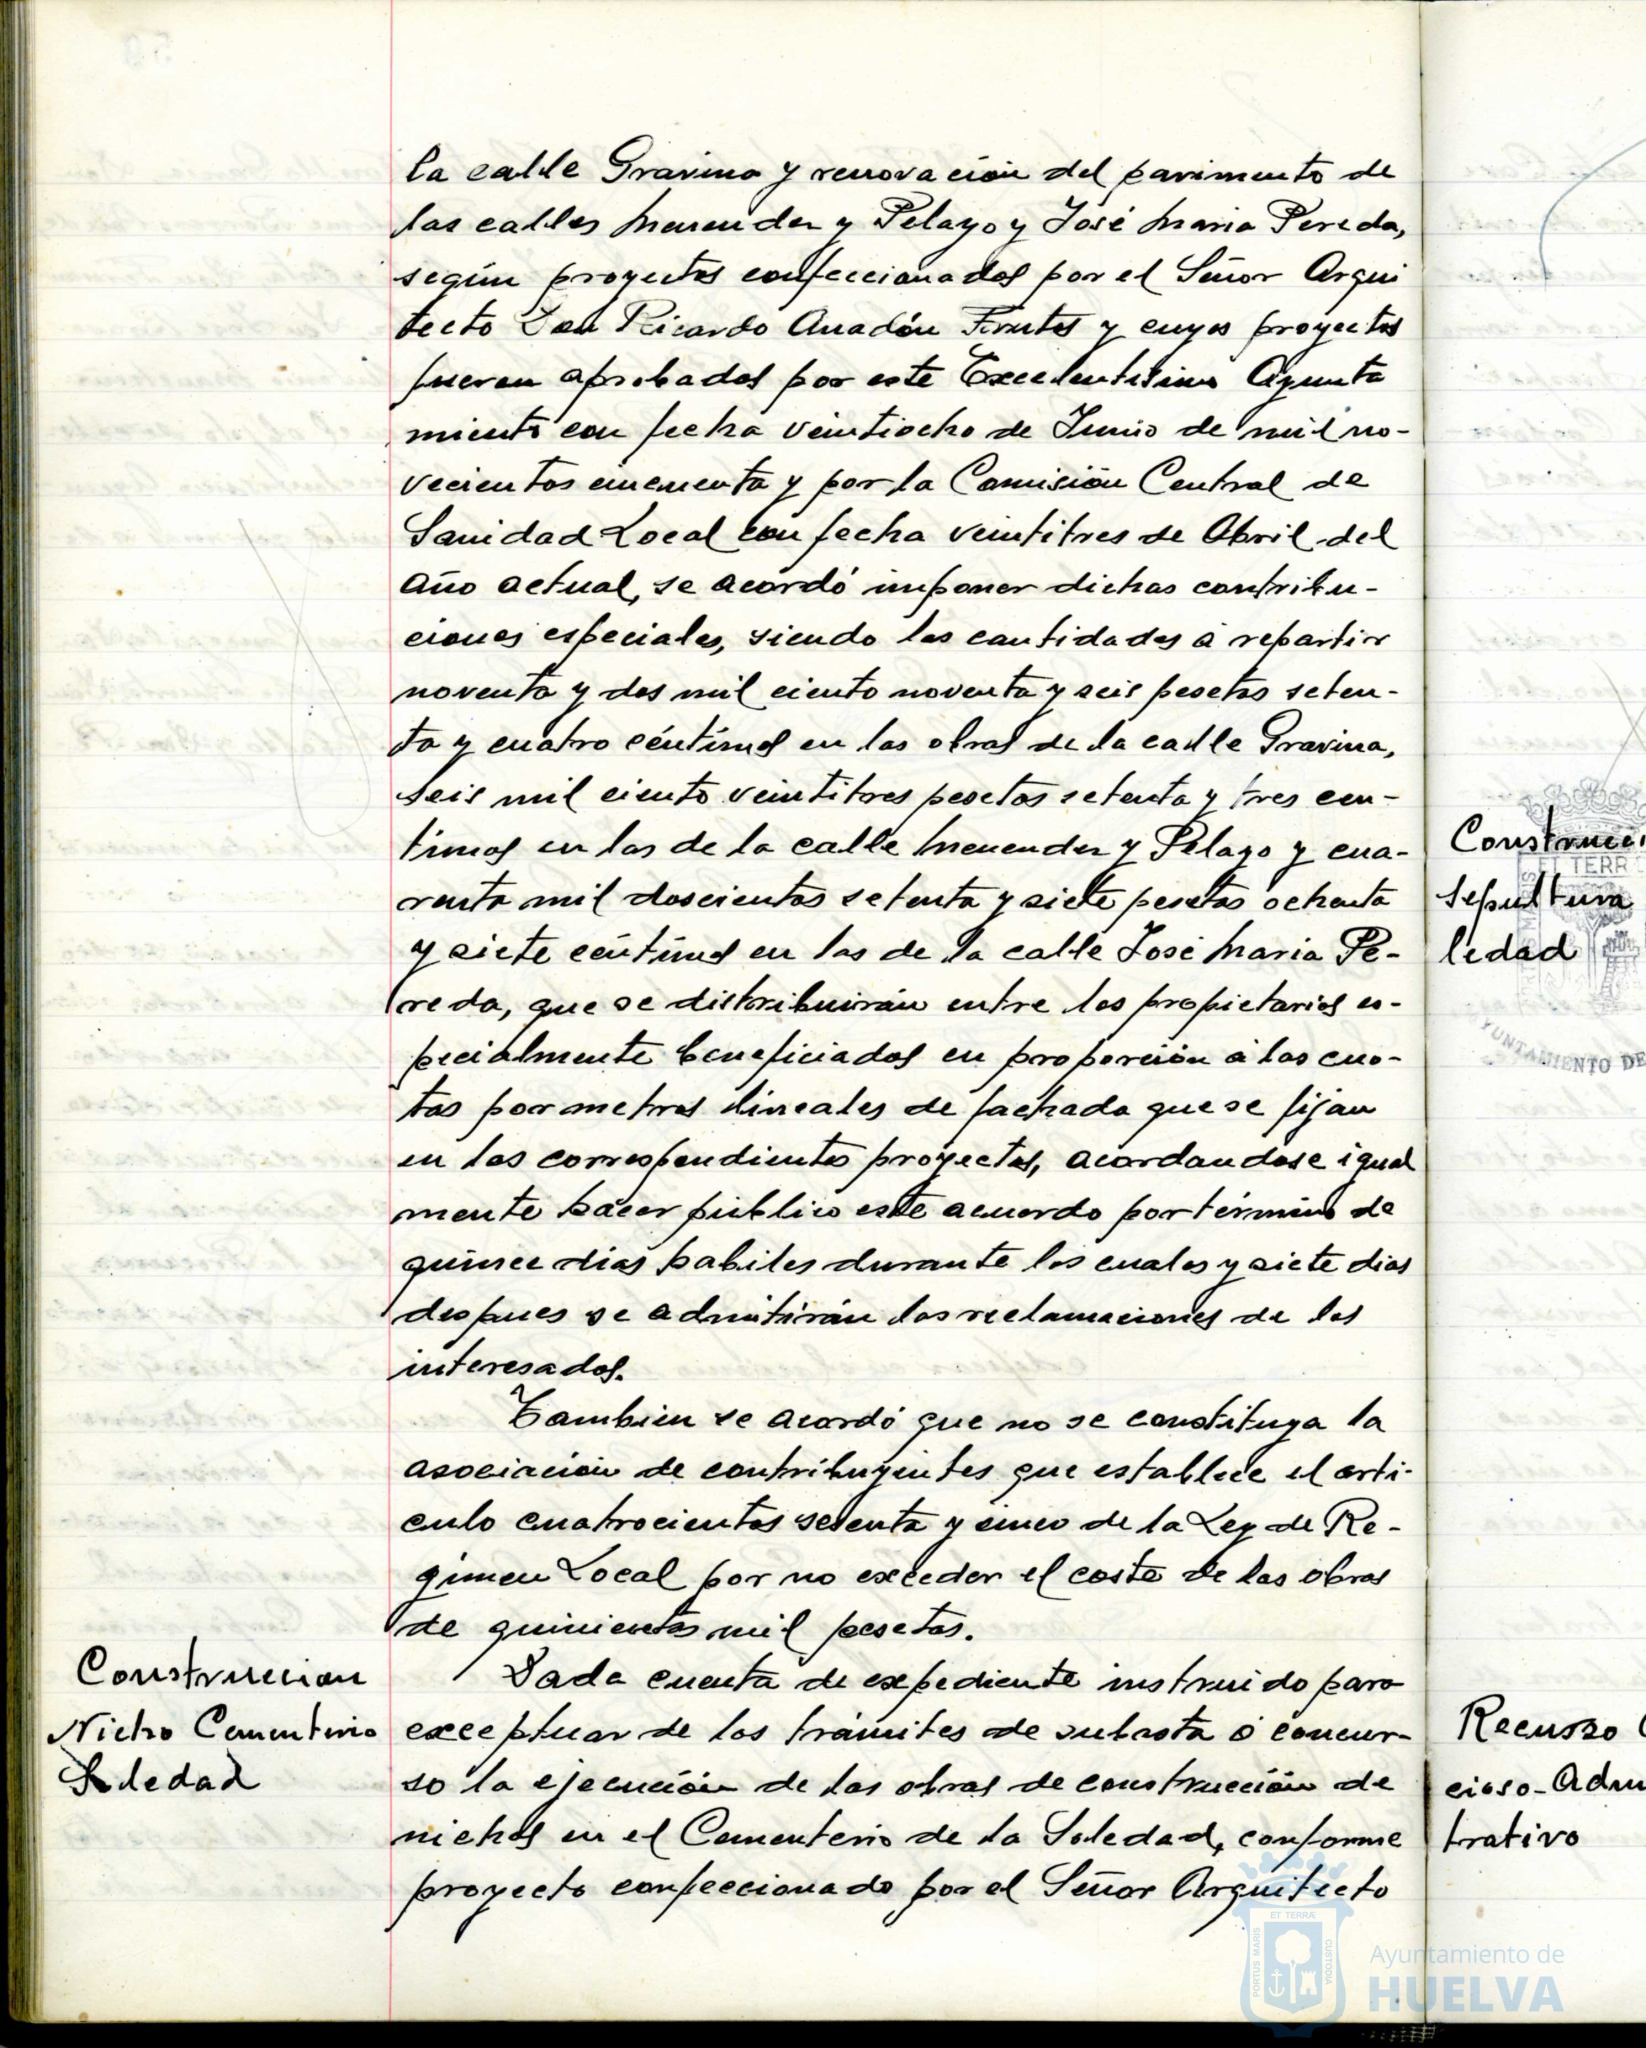 la calle Gravina y renovación del pavimento de
las calles Menendez y Pelayo y José Maria Pereda,
según proyectos confeccionados por el Señor Arqui
tecto Don Ricardo Anadón Frutos y cuyos proyectos
fueron aprobados por este Excelentisimo Ayunta
miento con fecha veintiocho de Junio de mil no-
vecientos cincuenta y por la Comisión Central de
Sanidad Local con fecha veintitres de Abril del
año actual, se acordó imponer dichas contribu-
ciones especiales, siendo las cantidades a repartir
noventa y dos mil ciento noventa y seis pesetas seten-
ta y cuatro céntimos en las obras de la calle Gravina,
seis mil ciento veintitres pesetas setenta y tres cen-
timos en las de la calle Menendez y Pelayo y cua-
renta mil doscientas setenta y siete pesetas ochenta
y siete céntimos en las de la calle José Maria Pe-
reda, que se distribuirán entre los propietarios es-
pecialmente beneficiados en proporción a las cuo-
tas por metros lineales de fachada que se fijan
en los correspondientes proyectos, acordandose igual
mente hacer público este acuerdo por término de
quince dias habiles durante los cuales y siete dias
despues se admitirán las reclamaciones de los
interesados.
Tambien se acordó que no se constituya la
asociación de contribuyentes que establece el arti-
culo cuatrocientos setenta y cinco de la Ley de Re-
gimen Local por no exceder el coste de las obras
de quinientas mil pesetas.
Construccion
Nicho Cementerio
Soledad
Dada cuenta de expediente instruido para
exceptuar de los trámites de subasta ó concur-
so la ejecución de las obras de construcción de
nichos en el Cementerio de la Soledad, conforme
proyecto confeccionado por el Señor Arquitecto
Construcci
sepultura
ledad
ET TERR
YUNTAMIENTO DE
Recurso
cioso-Adm
trativo
ET TERRÆ
PORTUS MARIS
CUSTODIA
Ayuntamiento de
HUELVA